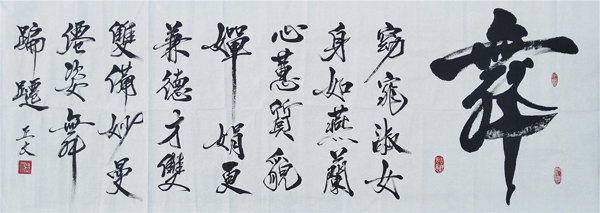 舞
窈窕淑女
身如燕蘭
心蕙質貌
嬋娟更
兼德才雙
雙備妙曼
僊姿舞
蹁躚
正文